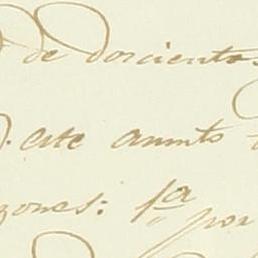 de dorcientos
este asunto
zones: 1ª por